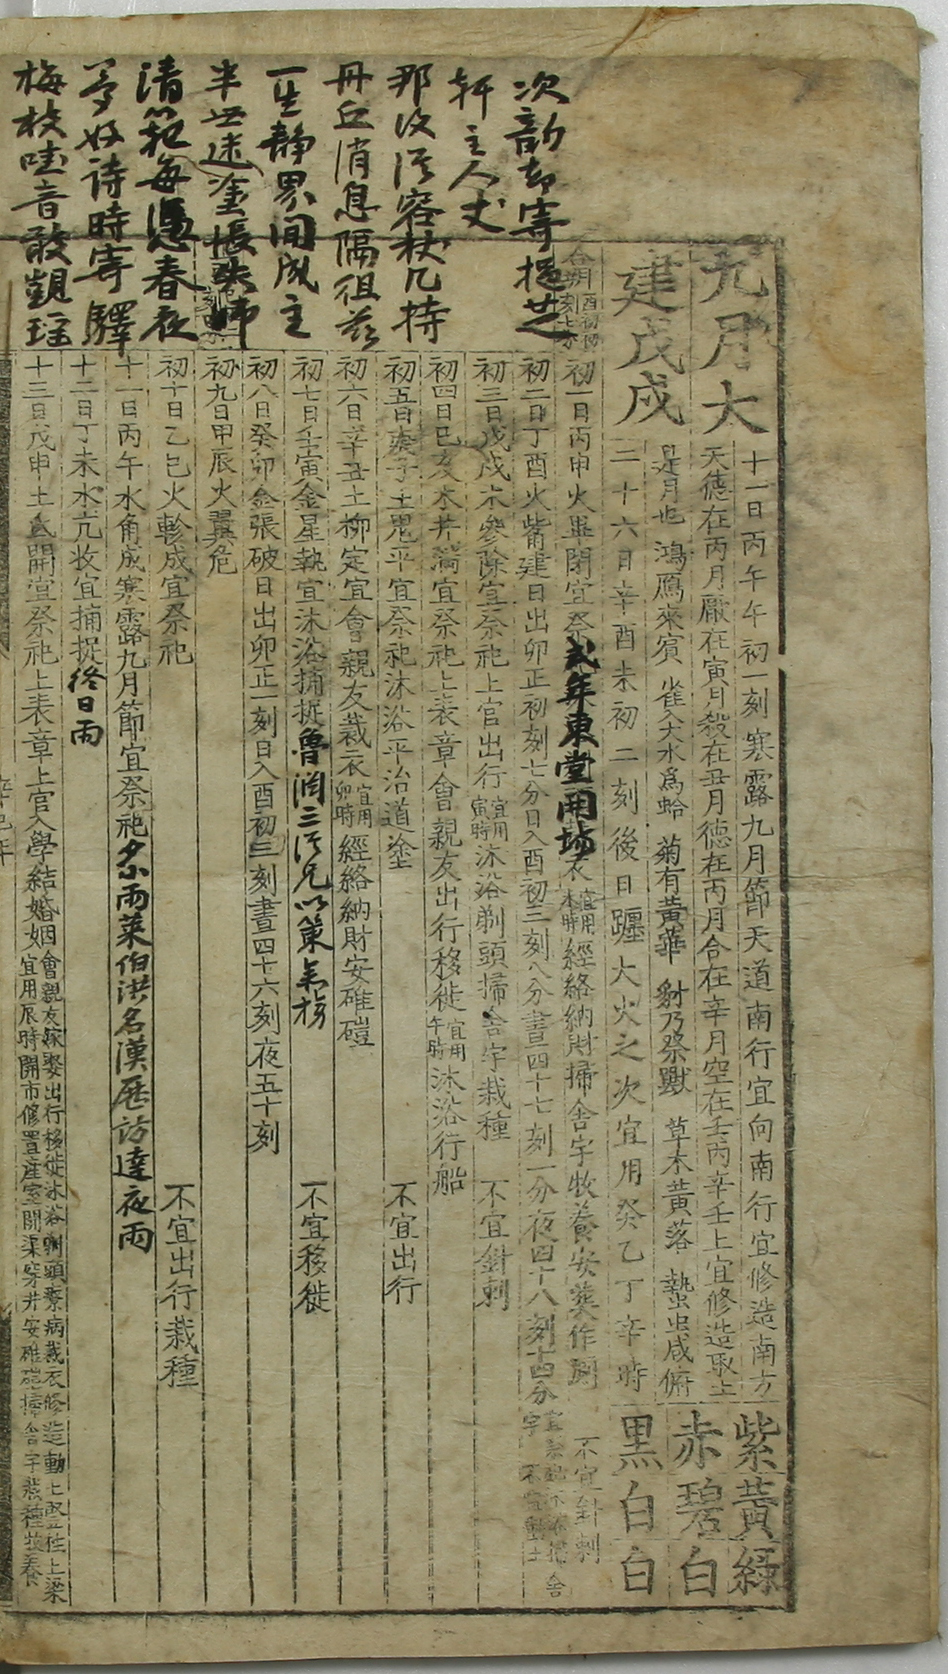 次韵却寄挹芝
軒主人丈
那汝滛容杖几持
丹丘消息隔徂玆
一生靜界间成主
半世迷塗悵失師
清範每憑春夜
夢好詩時寄驛
梅枝哇音敢覬瑶
九月大
建戊戌
十一日丙午午初一刻寒露九月節天道南行宜向南行宜修造南方
天德在丙月厭在寅月殺在丑月德在丙月合在辛月空在壬丙辛壬上宜修造取土
是月也 鴻鴈來賓 雀入大水爲蛤 菊有黃華 豺乃祭獸 草木黃落 蟄虫咸俯
二十六日辛酉未初二刻後日躔大火之次宜用癸乙丁辛時
紫黃綠
赤碧白
黑白白
合朔酉初初刻七分
初一日丙申火畢閉宜祭 式年東堂開場 衣宜用時經絡納財掃舍宇牧養安葬作厠 不宜針刺
初二日丁酉火觜建日出卯正初刻七分日入酉初三刻八分晝四十七刻一分夜四十八刻十四分
初三日戊戌木參除宜祭祀上官出行宜用寅時沐浴剃頭掃舍宇栽種 不宜針刺
初四日己亥木井滿宜祭祀上表章會親友出行移徙宜用午時沐浴行船
初五日庚子土鬼平宜祭祀沐浴平治道塗 不宜出行
初六日辛丑土柳定宜會親友裁衣宜用卯時經絡納財安碓磑
初七日壬寅金星執宜沐浴捕捉 不宜移徙
初八日癸卯金張破日出卯正一刻日入酉初三刻晝四十六刻夜五十刻
初九日甲辰火翼危
初十日乙巳火軫成宜祭祀 不宜出行栽種
十一日丙午水角成寒露九月節宜祭祀 夕小雨萊伯洪名漢歷訪達夜雨
十二日丁未水亢收宜捕捉 終日雨
十三日戊申土氐開宜祭祀上表章上官入學結婚姻會親友嫁娶出行移徙沐浴剃頭療病裁衣修造動土竪柱上梁宜用辰時開市修置産室開渠穿井安碓磑掃舍宇栽種牧養